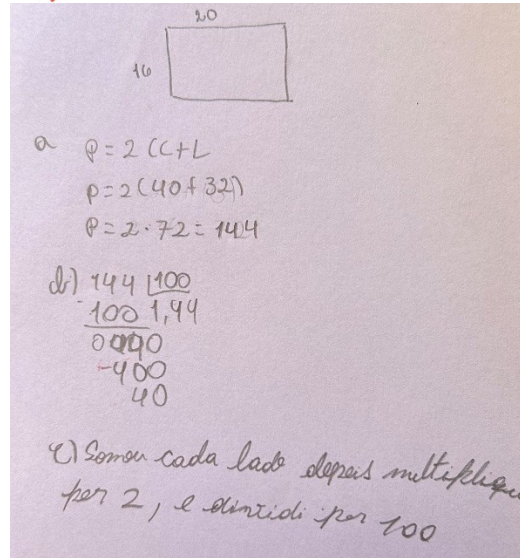 20
16
a P = 2 (C+L
P = 2 (40 + 32)
P = 2 . 72 = 144
b) 144 100
- 100 1,44
0 440
- 400
40
c) Somou cada lado depois multipliquei
por 2, e dividi por 100